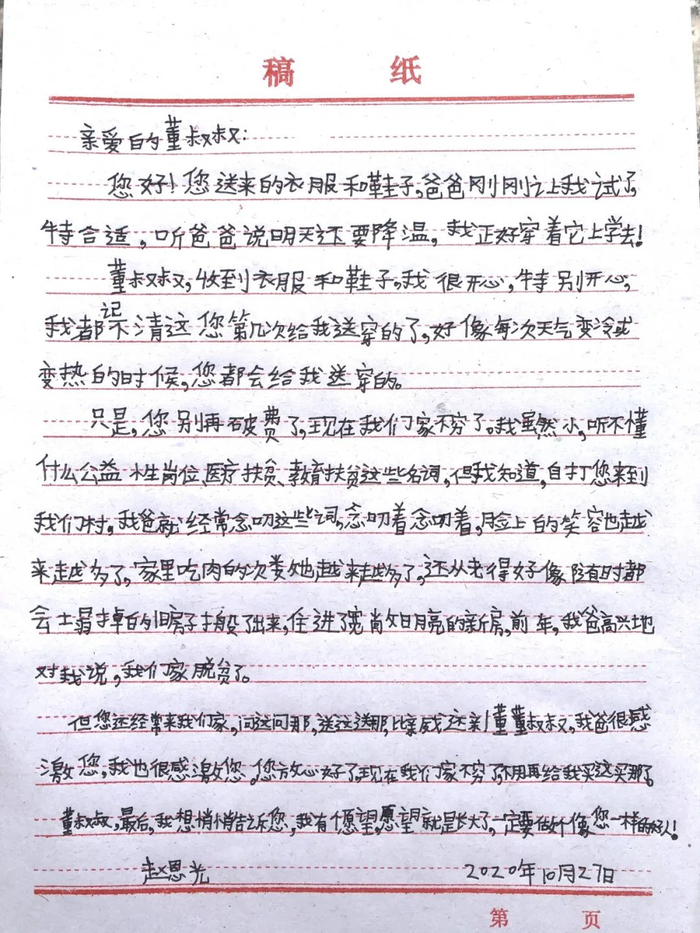 稿 纸
亲爱的董叔叔：
您好！您送来的衣服和鞋子，爸爸刚刚让我试了，
特合适，听爸爸说明天还要降温，我正好穿着它上学去！
董叔叔，收到衣服和鞋子，我很开心，特别开心，
我都记不清这您第几次给我送穿的了，好像每次天气变冷或
变热的时候，您都会给我送穿的。
只是，您别再破费了，现在我们家不穷了。我虽然小，听不懂
什么公益性岗位、医疗扶贫、教育扶贫这些名词，但我知道，自打您来到
我们村，我爸就经常念叨这些词，念叨着念叨着，脸上的笑容也越
来越多了，家里吃肉的次数也越来越多了，还从老得好像随时都
会塌掉的旧房子搬了出来，住进了宽敞明亮的新房，前年，我爸高兴地
对我说，我们家脱贫了。
但您还经常来我们家，问这问那，送这送那，比亲戚还亲！董董叔叔，我爸很感
激您，我也很感激您。您放心好了，现在我们家不穷了，不用再给我买这买那了。
董叔叔，最后，我想悄悄告诉您，我有个愿望，愿望就是长大了，一定要做个像您一样的好人！
赵恩光 2020年10月27日
第 页